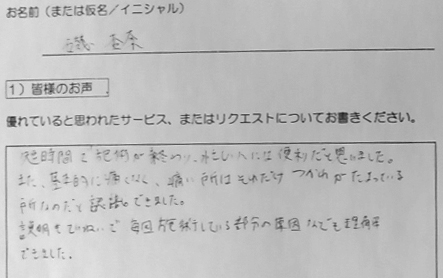 お名前（または仮名／イニシャル）
1）皆様のお声
優れていると思われたサービス、またはリクエストについてお書きください。
短時間で施術が終わり、忙しい人には便利だと思いました。
また、基本的に痛くなく、痛い所はそれだけつかれがたまっている
所なのだと認識できました。
説明もていねいで毎回施術している部分の原因なども理解
できました。